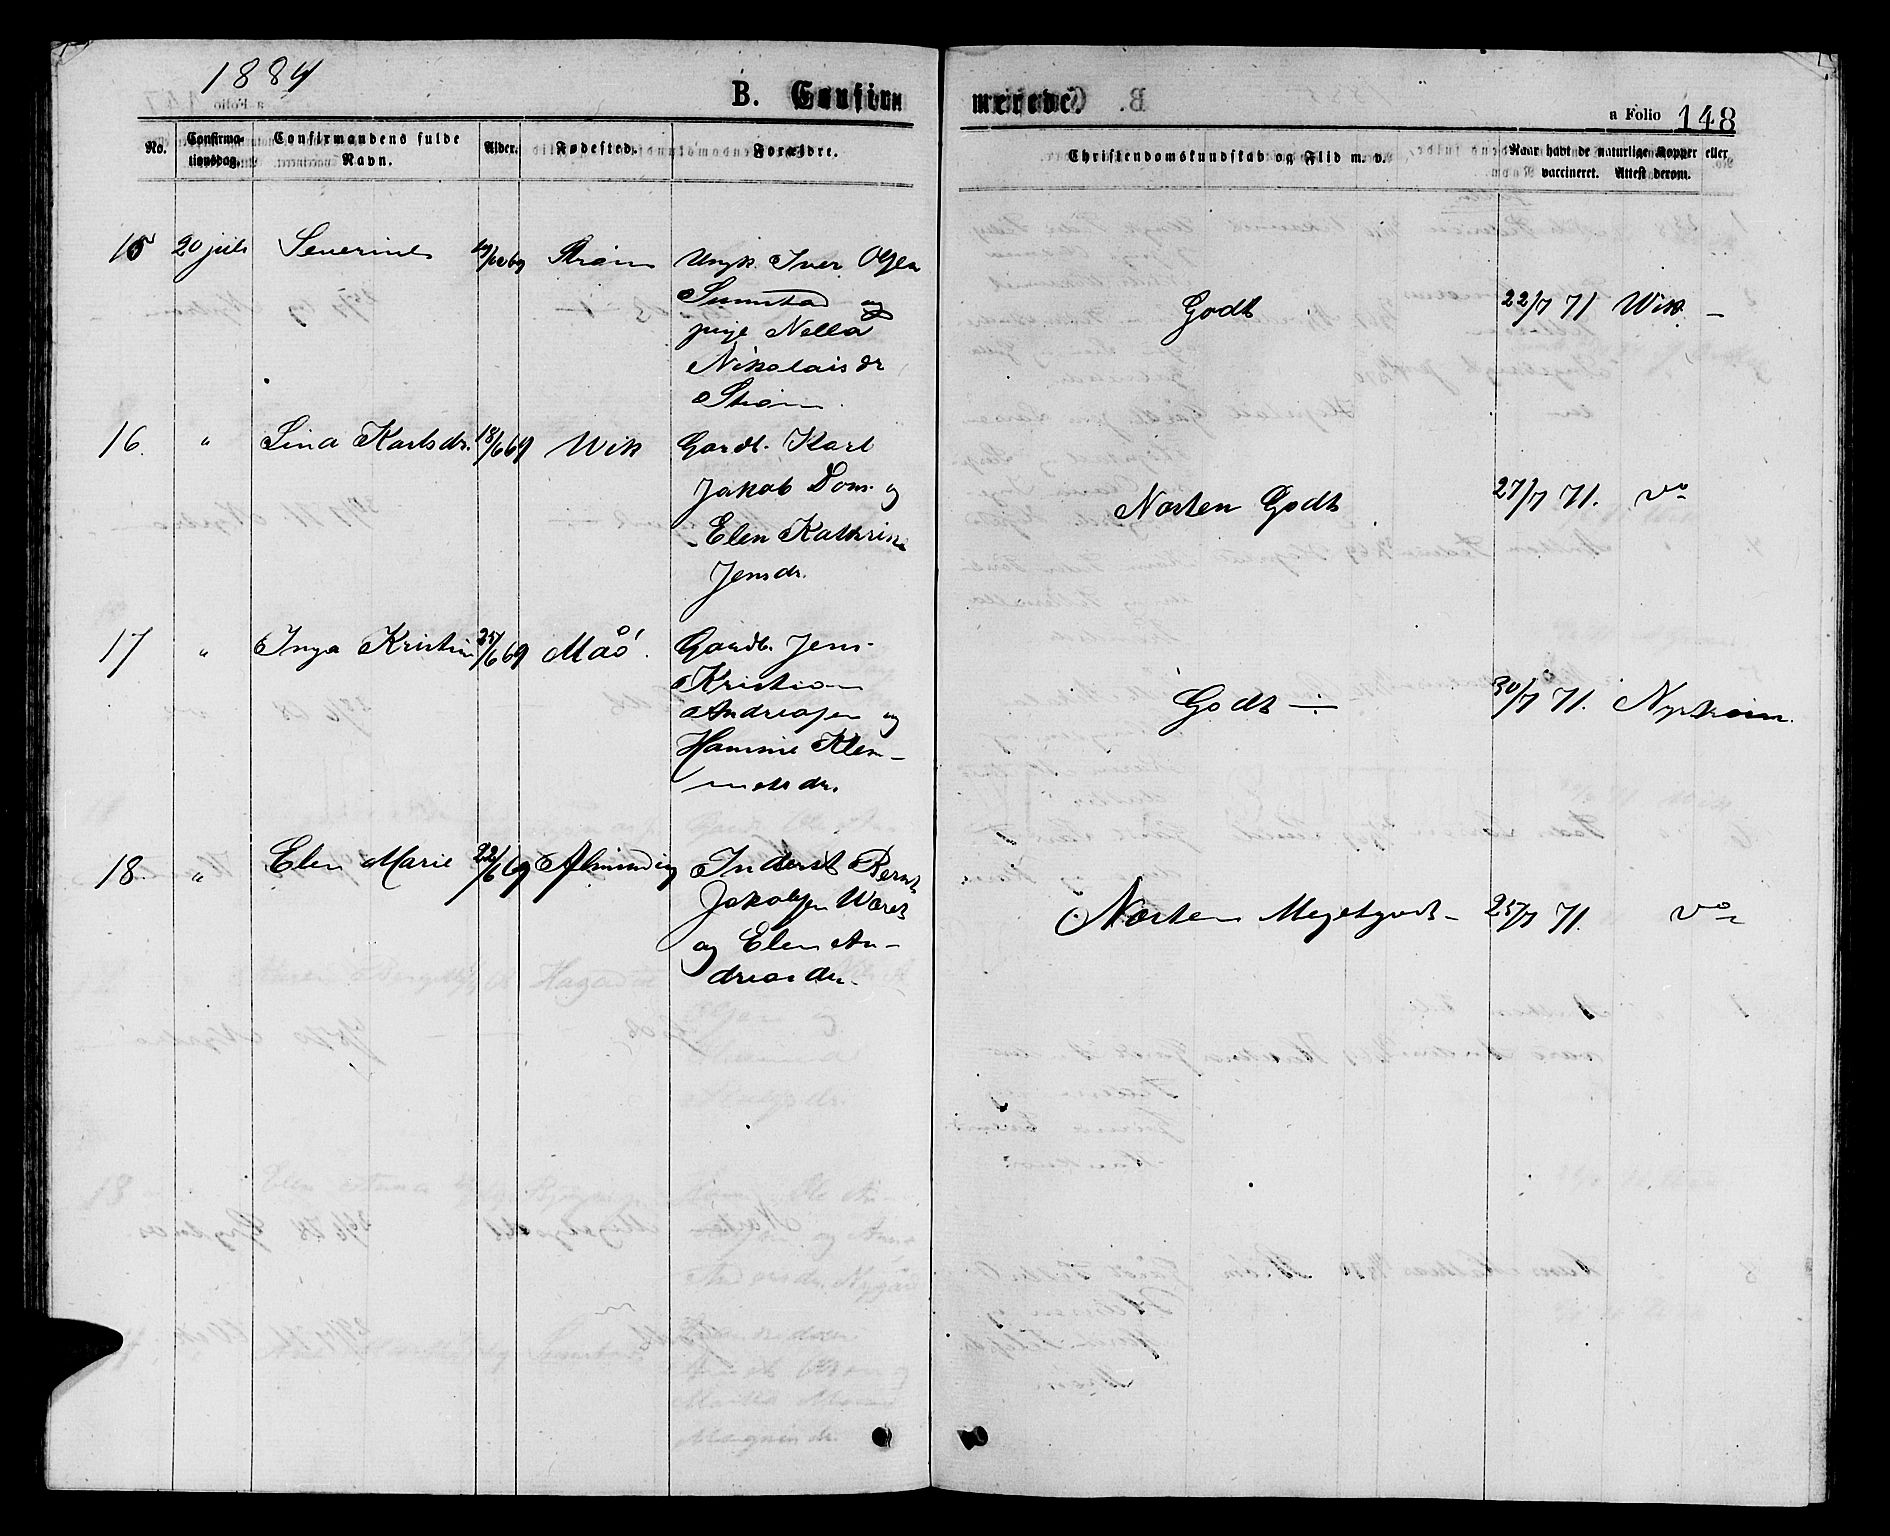 1884
B. Confir-
merede.
a Folio 148
No.
Confirma-
tionsdag.
Confirmandens fulde
Navn.
Alder.
Fødested.
Forældre.
Christendomskundskab og Flid m. v.
Naar havt de naturlige Kopper eller
vaccineret. Attest derom.
15 20 juli Severine 69 Strøm Ungk. Iver Olsen
og
pige Nella
Nikolaisdr
Strøm.
Godt 22/7 71 Wik. –
16. " Lina Karlsdr. 18/6 69 Wik Gardb. Karl
Jakob Dons. og
Elen Kathrine
Jensdr.
Næsten Godt 27/7 71. do
17 " Inga Kristin 25/6 69 Måø. Gardb. Jens
Kristian
Andreasen og
Hannie Klem-
metsdr.
Godt ÷ 30/7 71. Nystrøm.
18. " Elen Marie 22/6 69 Almuding Inderst Bernt
Jakobsen Wæret
og Elen An-
dreasdr.
Næsten Megetgodt – 25/7 71. do